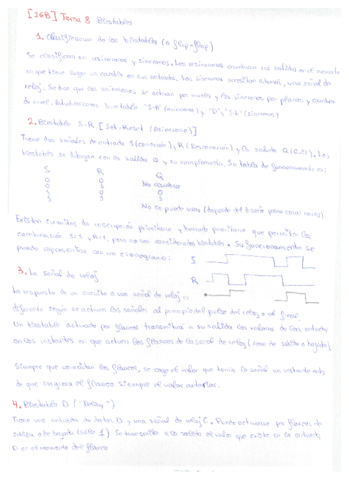 [IGB] Tema 8 Biestables
1. Clasificación de los biestables (o flip-flop)
Se clasifican en asíncronos y síncronos. Los asíncronos cambian su salida en el momento
en que tiene lugar un cambio en sus entradas. Los síncronos necesitan además, una señal de
reloj. Se dice que los asíncronos se activan por niveles y los síncronos por flancos y cambios
de nivel.
2. Biestable S-R [Set-Reset (Asíncrono)]
Tiene dos señales de entrada S (conexión), R (Desconexión) y la salida Q (0,1). Los
biestables se dibujan con la salida Q y su complementaria. Su tabla de funcionamiento es:
S R Q
0 0 No cambia
0 1 0
1 0 1
1 1 No se puede usar
Existen circuitos de inscripción prioritaria y borrado prioritario que permiten la
combinación S=1, R=1, pero no son considerados biestables. Su funcionamiento se
puede representar con un cronograma: S
R
3. La señal de reloj
La respuesta de un circuito a una señal de reloj es
diferente según se activen las señales al principio del pulso del reloj o al final.
Un biestable activado por flancos transmitirá a su salida los valores de las entradas
en los instantes en que actúen los flancos de la señal de reloj (sean de subida o bajada).
Siempre que coincidan los flancos, se coge el valor que tenía la señal un instante antes
de que empiece el flanco. Siempre el valor anterior.
4. Biestable D ("Delay")
Tiene una entrada de datos D y una señal de reloj C. Puede activarse por flancos de
subida o de bajada Se transmite a su salida el valor que existe en la entrada
D en el momento del flanco